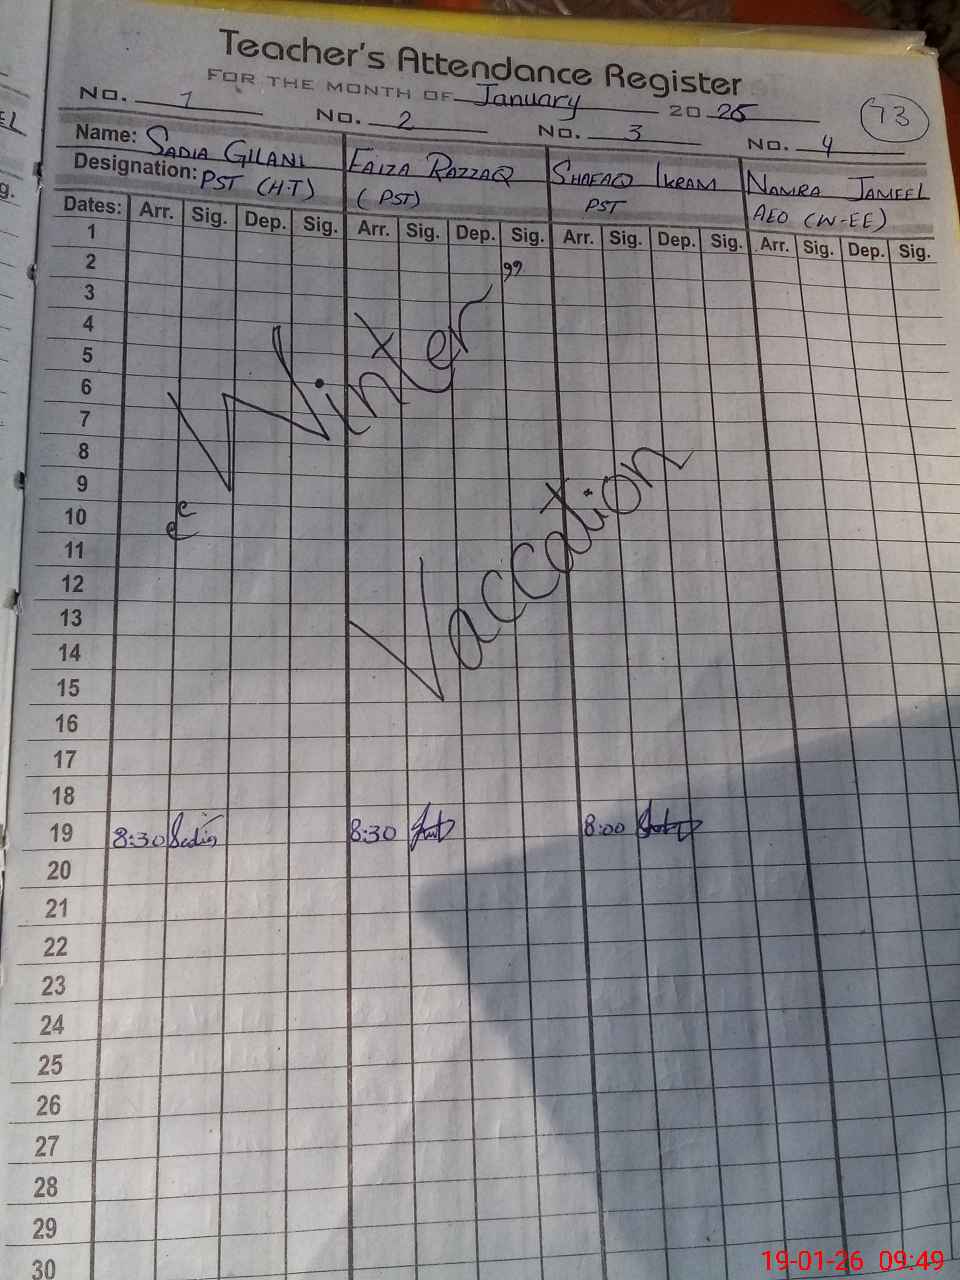 Teacher's Attendance Register
FOR THE MONTH OF January 20 25
73
No. 1 No. 2 No. 3 No. 4
Name: SADIA GILANI FAIZA RAZZAQ SHAFAQ IKRAM NAMRA JAMEEL
Designation: PST (H.T) (PST) PST AEO (W-EE)
Dates: Arr. Sig. Dep. Sig. Arr. Sig. Dep. Sig. Arr. Sig. Dep. Sig. Arr. Sig. Dep. Sig.
1
2
3
4
5
6
7
8
9
10
11
12
13
14
15
16
17
18
"Winter"
Vaccation
19 8:30 Sadia 8:30 8:00
20
21
22
23
24
25
26
27
28
29
30
19-01-26 09:49